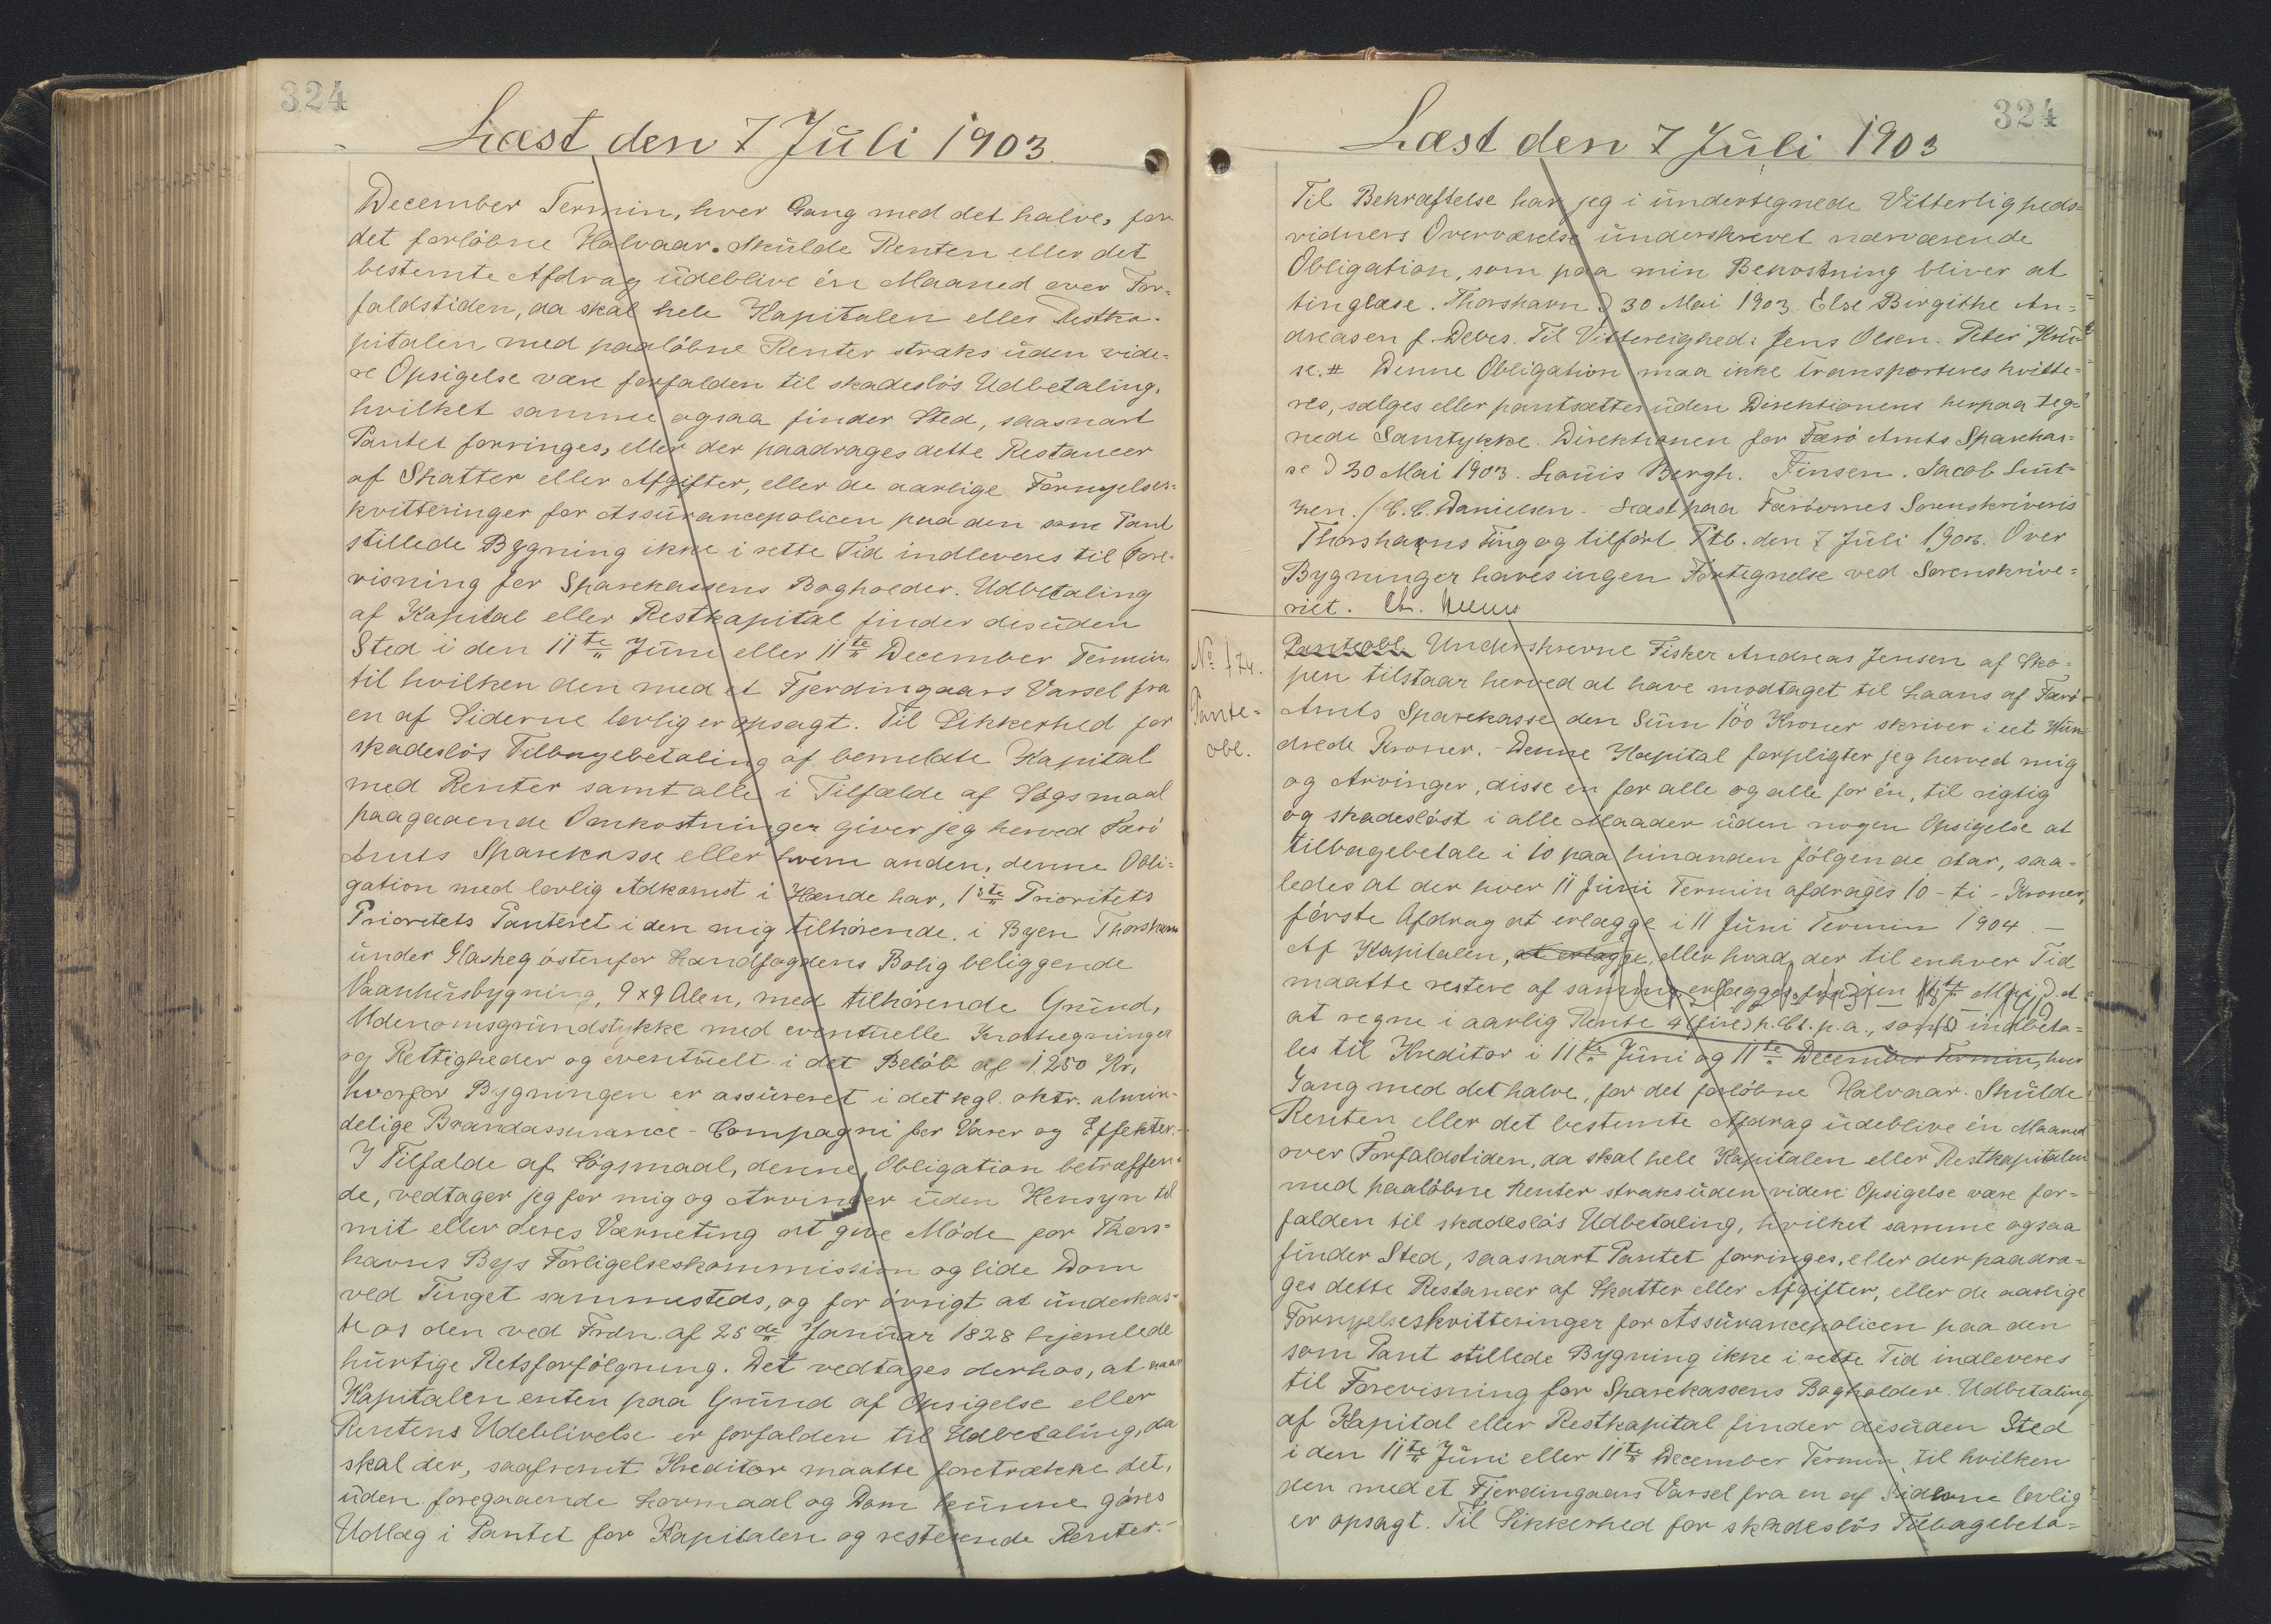 324
Læst den 7 Juli 1903.
December Termin, hver Gang med det halve, for
det forløbne Halvaar. Skulde Renten eller det
bestemte Afdrag udeblive én Maaned over For=
faldstiden, da skal hele Kapitalen eller Restka-
pitalen med paaløbne Renter straks uden vide=
re Opsigelse være forfalden til skadesløs Udbetaling,
hvilket samme ogsaa finder Sted, saasnart
Pantet forringes, eller der paadrages dette Restancer
af Skatter eller Afgifter, eller de aarlige Fornyelses=
kvitteringer for Assurancepolicen paa den som Pant
stillede Bygning ikke i rette Tid indleveres til Fore-
visning for Sparekassens Bogholder. Udbetaling
af Kapital eller Restkapital finder desuden
Sted i den 11te Juni eller 11te December Termin,
til hvilken den med et Fjerdingaars Varsel fra
en af Siderne lovlig er opsagt. Til Sikkerhed for
skadesløs Tilbagebetaling af bemeldte Kapital
med Renter samt alle i Tilfælde af Søgsmaal
paagaaende Omkostninger giver jeg herved Færø
Amts Sparekasse eller hvem anden, denne Obli=
gation med lovlig Adkomst i Hænde har, 1ste Prioritets
Prioritets Panteret i den mig tilhørende, i Byen Thorshavn
under Glasheg østenfor Landfogdens Bolig beliggende
Vaanhusbygning, 9 x 9 Alen, med tilhørende Grund,
Udenomsgrundstykke med eventuelle Indhegninger
og Rettigheder og eventuelt i det Beløb af 1,250 Kr,
hvorfor Bygningen er assureret i det kgl. oktr. almin-
delige Brandassurance-Compagni for Varer og Effekter.-
I Tilfælde af Søgsmaal, denne Obligation betræffen=
de, vedtager jeg for mig og Arvinger uden Hensyn til
mit eller deres Værneting at give Møde for Thors=
havns Bys Forligelseskommission og lide Dom
ved Tinget sammesteds, og for øvrigt at underkas=
te os den ved Frdn. af 25de Januar 1828 hjemlede
hurtige Retsforfølgning. Det vedtages derhos, at naar
Kapitalen enten paa Grund af Opsigelse eller
Rentens Udeblivelse er forfalden til Udbetaling, da
skal der, saafremt Kreditor maatte foretrække det,
uden foregaaende Lovmaal og Dom kunne gøres
Udlæg i Pantet for Kapitalen og resterende Renter.-
324
Læst den 7 Juli 1903
Til Bekræftelse har jeg i undertegnede Vitterligheds=
vidners Overværelse underskrevet nærværende
Obligation, som paa min Bekostning bliver at
tinglæse. Thorshavn d 30 Mai 1903. Else Birgithe An=
dreasen f. Debes. Til Vitterlighed: Jens Olsen. Peter Kru=
se. # Denne Obligation maa ikke transporteres kvitte=
res, sælges eller pantsættes uden Direktionens herpaa teg=
nede Samtykke. Direktionen for Færø Amts Sparekas=
se d 30 Mai 1903. Louis Bergh. Finsen. Jacob Lut-
zen. / C. C. Danielsen. - Læst paa Færøernes Sorenskriveris
Thorshavns Ting og tilført Ptb. den 7 Juli 1903. Over
Bygninger haves ingen Fortegnelse ved Sorenskrive=
riet.
No 174.
Pante=
obl.
Panteobl. Underskrevne Fisker Andreas Jensen af Sko=
pen tilstaar herved at have modtaget til Laans af Færø
Amts Sparekasse den Sum 100 Kroner skriver i et Hun
drede Kroner. - Denne Kapital forpligter jeg herved mig
og Arvinger, disse en for alle og alle for én, til rigtig
og skadesløst i alle Maader uden nogen Opsigelse at
tilbagebetale i 10 paa hinanden følgende Aar, saa-
ledes at der hver 11 Juni Termin afdrages 10 - ti - Kroner,
første Afdrag at erlægge i 11 Juni Termin 1904. -
Af Kapitalen, at erlægge, eller hvad der til enhver Tid
maatte restere af samme, erlægges fra den 11te Maj d. A
at regne i aarlig Rente 4 (fire) p. Ct. p. a., som indbeta=
les til Kreditor i 11te Juni og 11te December Termin, hver
Gang med det halve, for det forløbne Halvaar. Skulde
Renten eller det bestemte Afdrag udeblive én Maaned
over Forfaldstiden, da skal hele Kapitalen eller Restkapitalen
med paaløbne Renter straks uden videre Opsigelse være for=
falden til skadesløs Udbetaling, hvilket samme ogsaa
finder Sted, saasnart Pantet forringes, eller der paadra=
ges dette Restancer af Skatter eller Afgifter, eller de aarlige
Fornyelseskvitteringer for Assurancepolicen paa den
som Pant stillede Bygning ikke i rette Tid indleveres
til Forevisning for Sparekassens Bogholder. Udbetaling
af Kapital eller Restkapital finder desuden Sted
i den 11te Juni eller 11te December Termin, til hvilken
den med et Fjerdingaars Varsel fra en af Siderne lovlig
er opsagt. Til Sikkerhed for skadesløs Tilbagebeta=